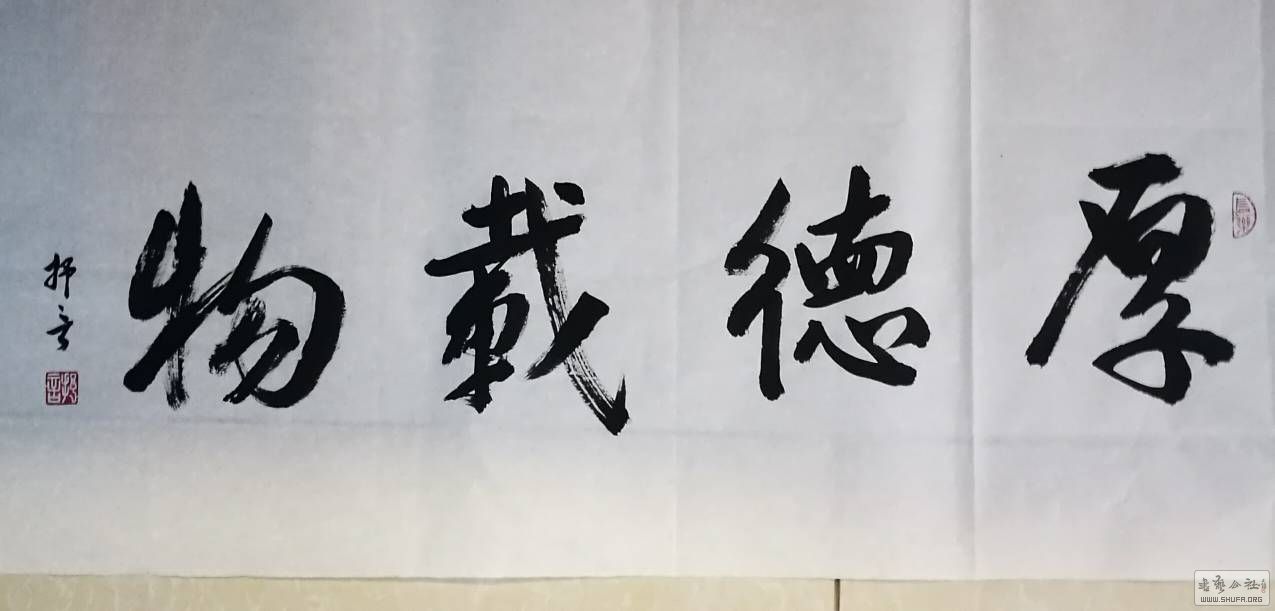 厚德載物
抒言
书艺公社
WWW.SHUFA.ORG